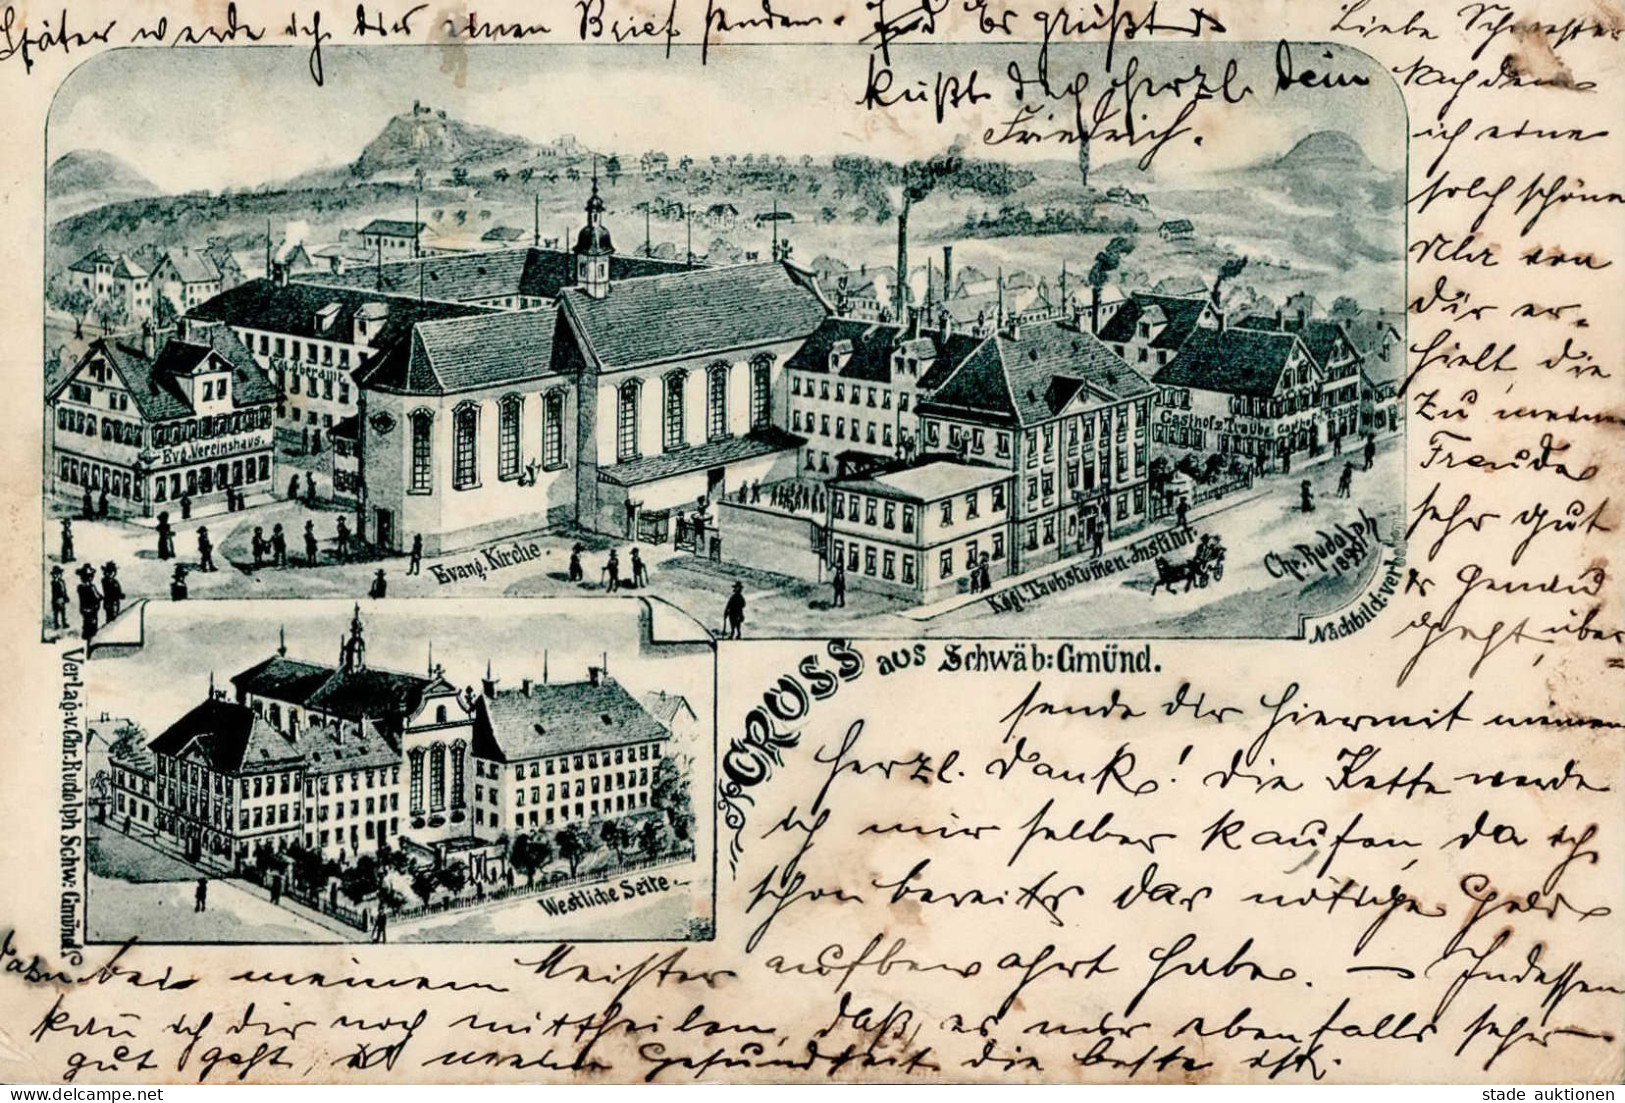 Liebe Schwester
Nachdem
ich eine
solch schöne
Uhr von
dir er-
hielt, die
zu meiner
Freude
sehr gut
u genau
geht, über-
sende dir hiermit meinen
herzl. Dank! Die Kette werde
ich mir selber kaufen, da ich
schon bereits das nötige Geld
dazu bei meinem Meister aufbewahrt habe. — Indessen
kan̄ ich dir noch mittheilen, daß, es mir ebenfalls sehr
gut geht, meine Gesundheit die beste ist.
Später werde ich dir einen Brief senden. Es grüßt u
küßt dich herzl. dein
Friedrich.
Kgl. Oberamt.
Evg. Vereinshaus.
Evang. Kirche.
Gasthof z. Traube
Gasthof z. Traube
Kögl. Taubstumen-Institut.
Chr. Rudolph
1897
Nachbild: verboten
GRUSS aus Schwäb: Gmünd.
Westliche Seite.
Verlag: v. Chr. Rudolph Schw: Gmünd
stade auktionen